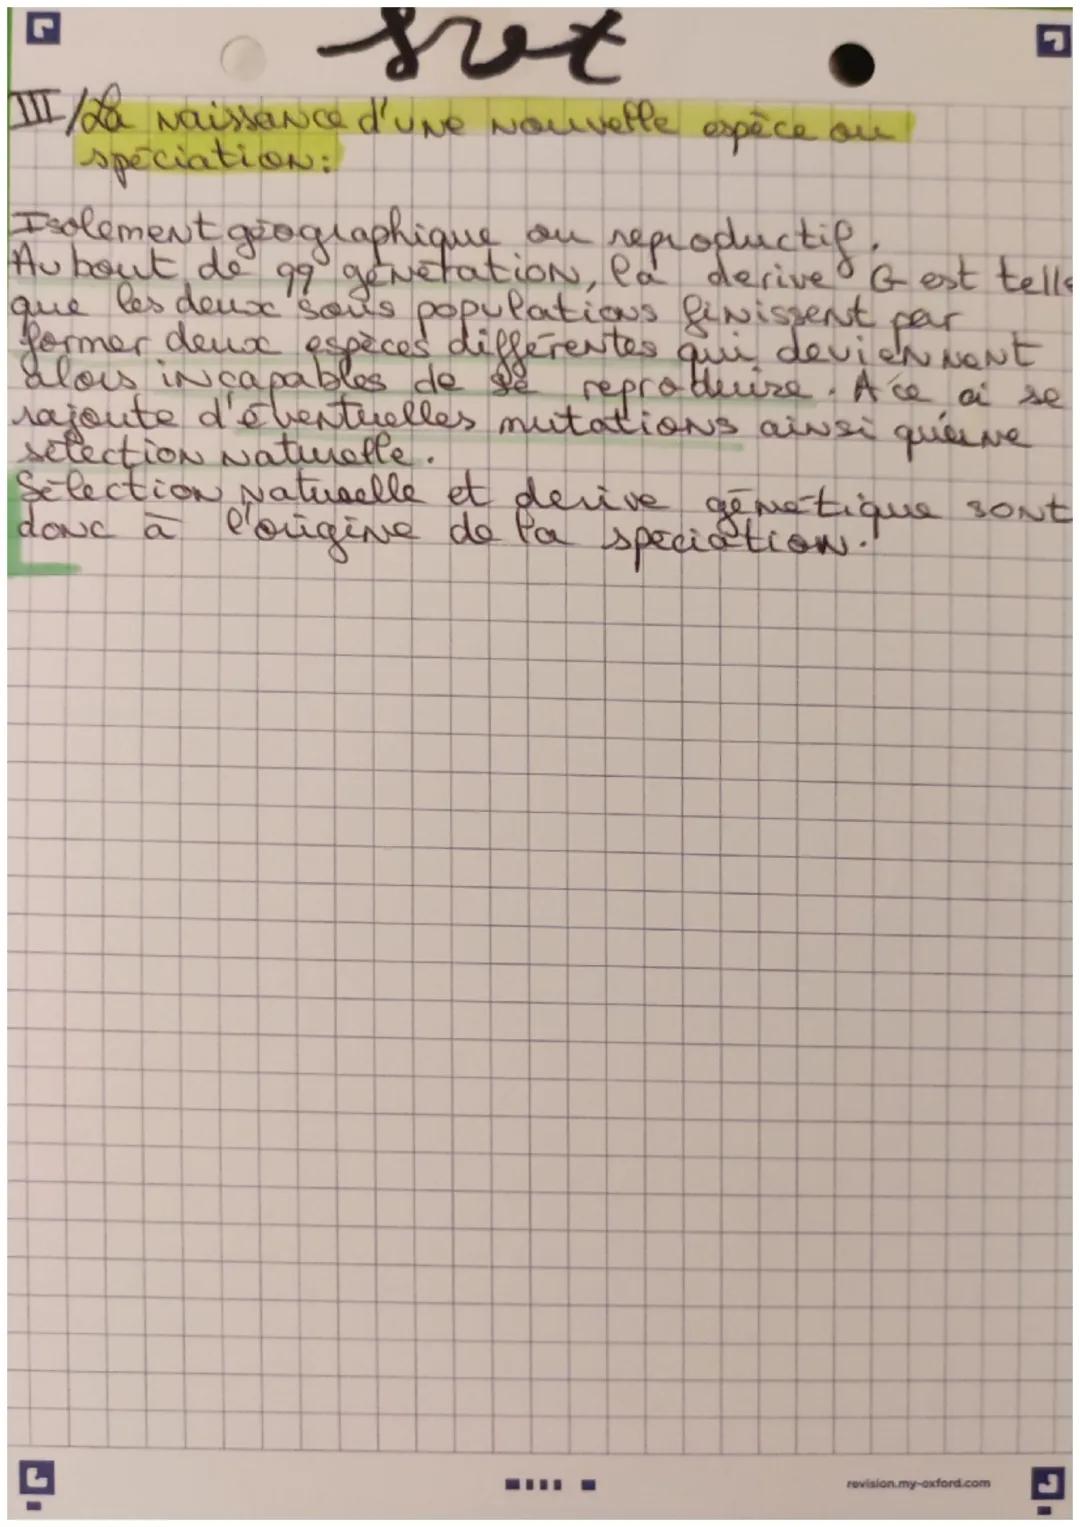 svt
III/La naissance d'une nouvelle espèce ou
spéciation:
Isolement géographique ou reproductif.
Au bout de qq génération, la derive G est telle
que les deux sous populations finissent par
former deux espèces différentes qui deviennent
alors incapables de se reproduire. A ce ci se
rajoute d'éventuelles mutations ainsi qu'une
sélection naturelle.
Sélection naturelle et derive génétique sont
donc à l'origine de la spéciation.
revision.my-oxford.com